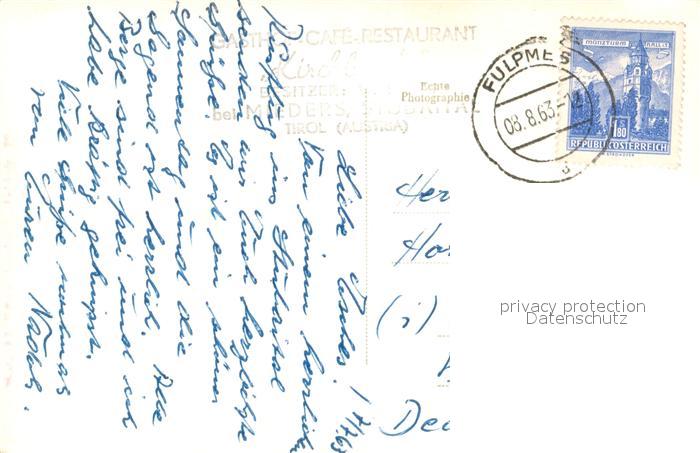 GASTHOF-CAFÉ-RESTAURANT
BESITZER:
bei MIEDERS, STUBAITAL
TIROL (AUSTRIA)
Echte
Photographie
FULPMES
08.8.63
MÜNZTURM HALL i.T.
1.80
REPUBLIK ÖSTERREICH
Liebe
Von einem herrlichen
Ausflug ins Stubaital
senden wir Euch herzlichste
Grüße. Es ist ein schöner
Sonnentag und die
Gegend ist herrlich. Die
Berge sind frei und ich
habe kräftig geknipst.
Viele Grüße nochmals
von Euren
Her
Ha
(
De
privacy protection
Datenschutz